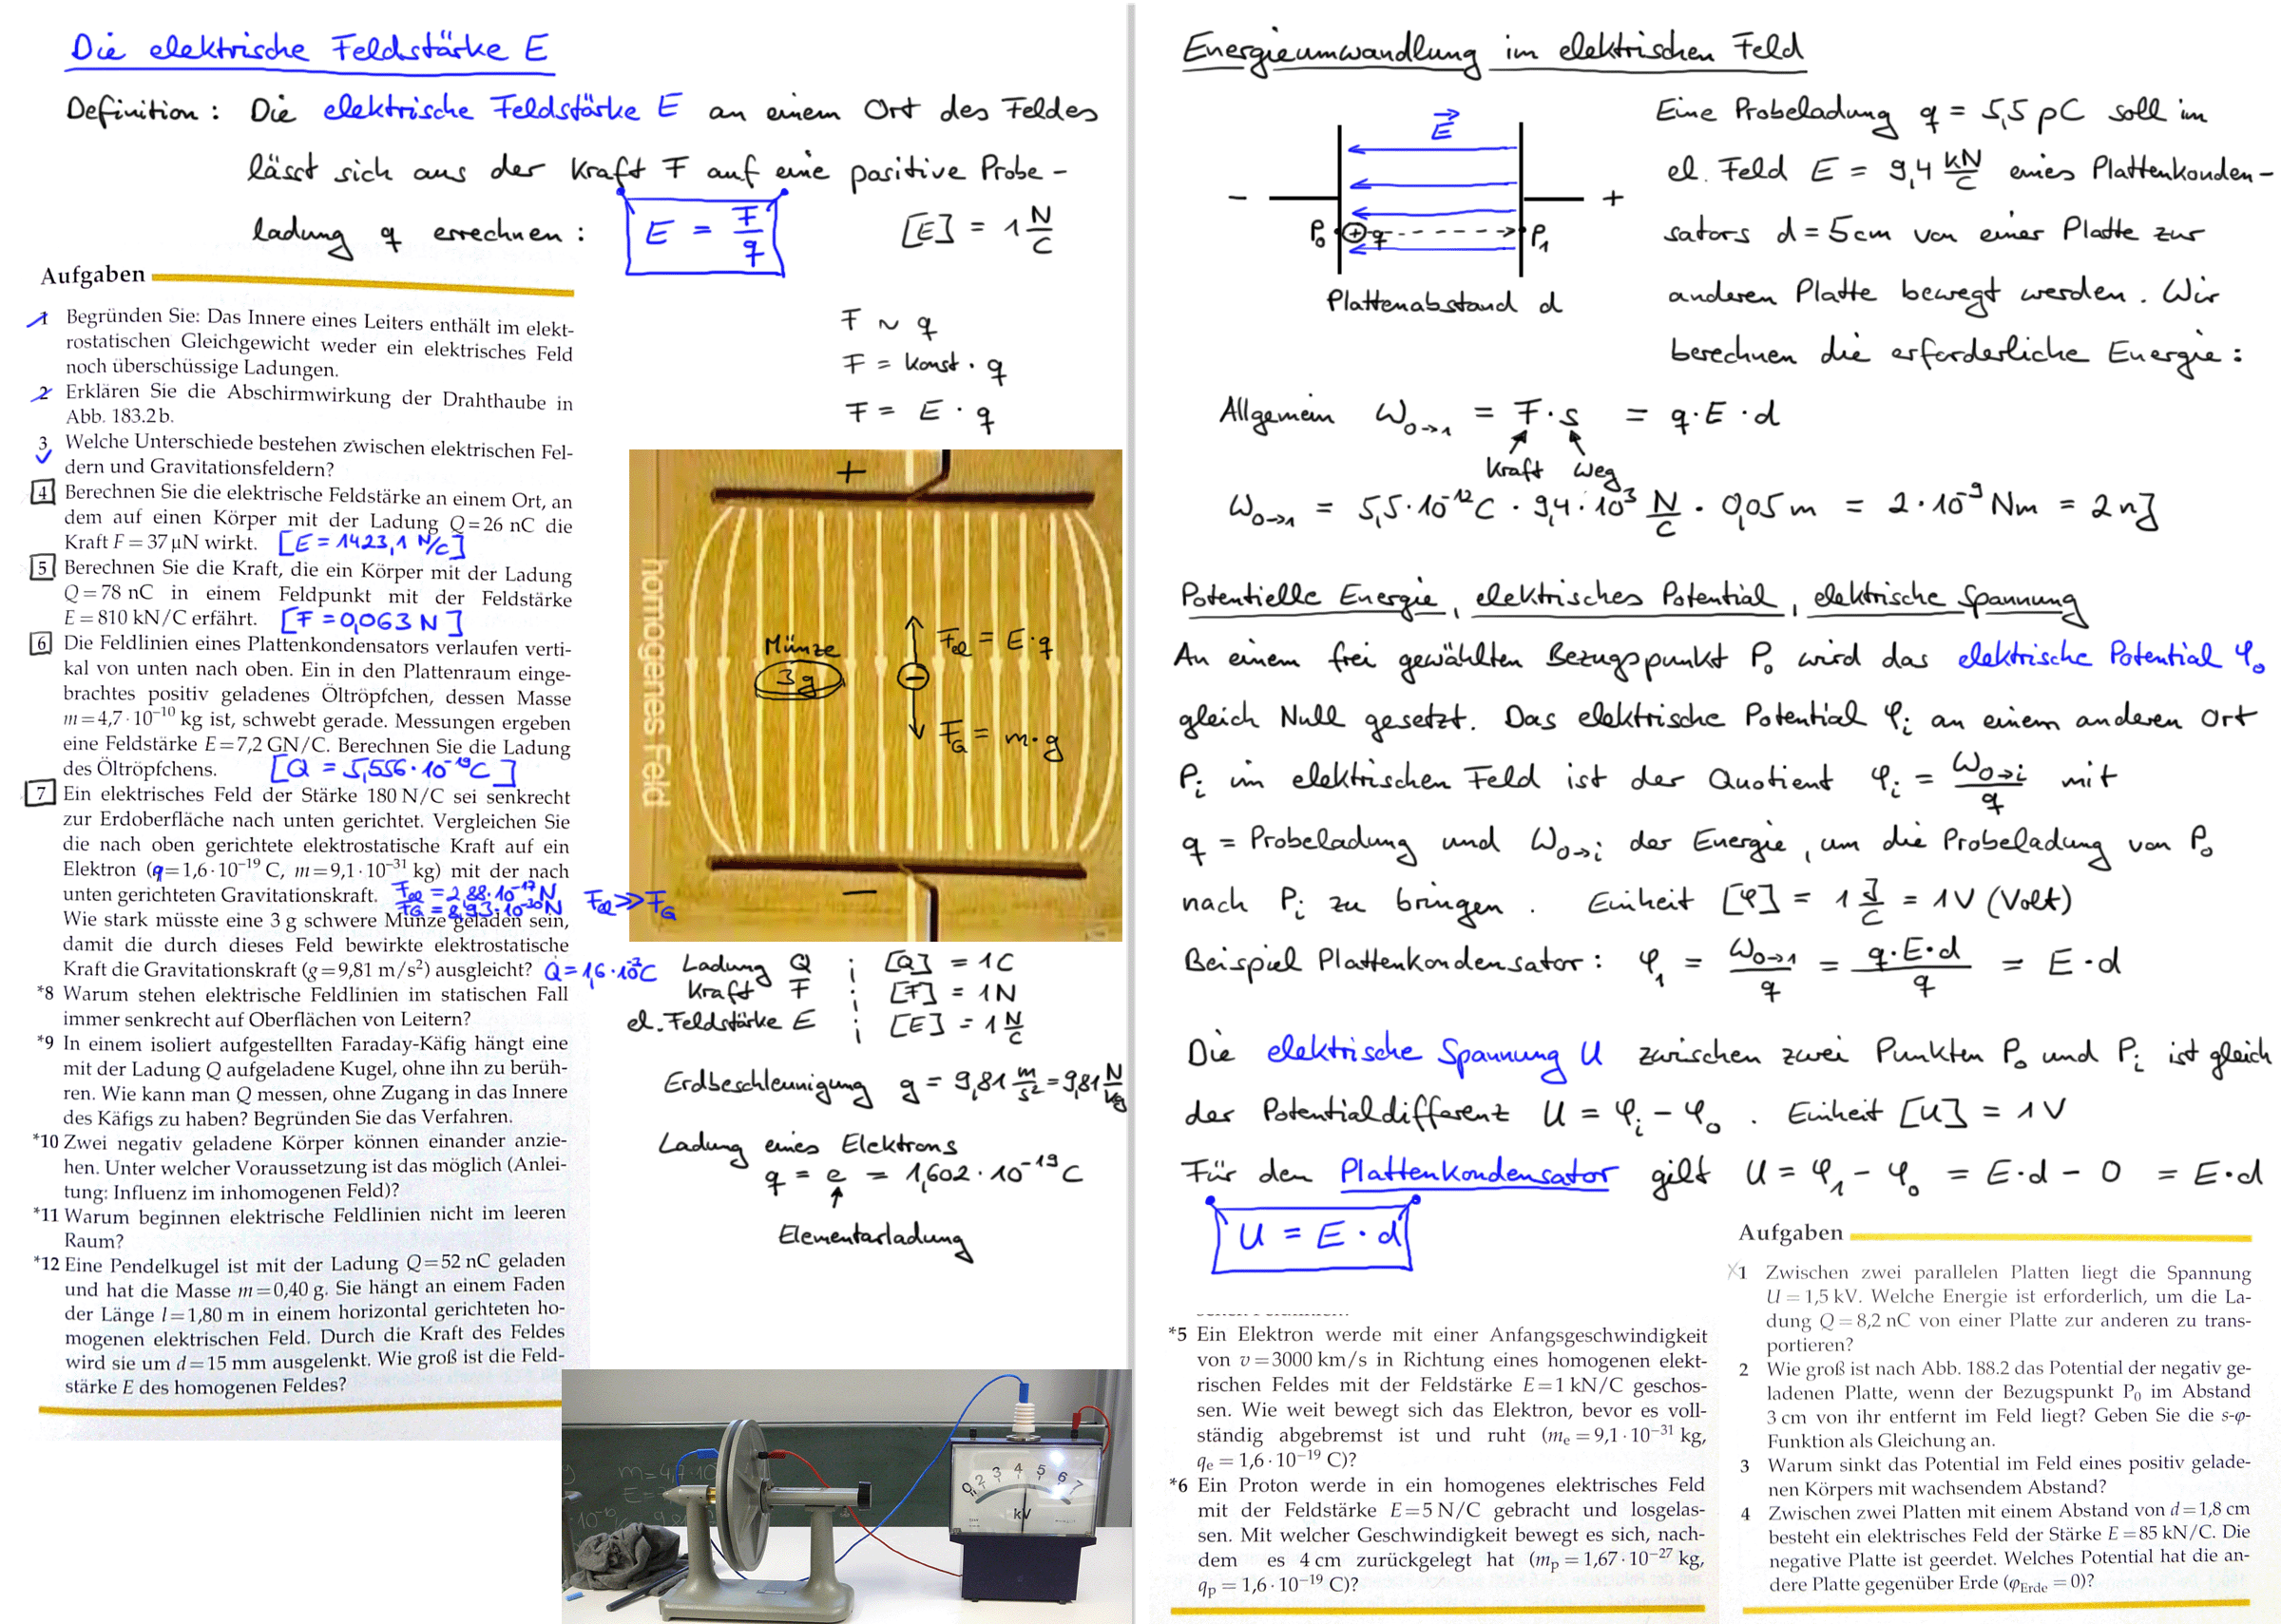 Die elektrische Feldstärke E
Definition: Die elektrische Feldstärke E an einem Ort des Feldes
lässt sich aus der Kraft F auf eine positive Probe-
ladung q errechnen: E = F/q [E] = 1 N/C
Aufgaben
1 Begründen Sie: Das Innere eines Leiters enthält im elekt-
rostatischen Gleichgewicht weder ein elektrisches Feld
noch überschüssige Ladungen.
2 Erklären Sie die Abschirmwirkung der Drahthaube in
Abb. 183.2b.
3 Welche Unterschiede bestehen zwischen elektrischen Fel-
dern und Gravitationsfeldern?
4 Berechnen Sie die elektrische Feldstärke an einem Ort, an
dem auf einen Körper mit der Ladung Q=26 nC die
Kraft F=37 µN wirkt. [E = 1423,1 N/C]
5 Berechnen Sie die Kraft, die ein Körper mit der Ladung
Q=78 nC in einem Feldpunkt mit der Feldstärke
E=810 kN/C erfährt. [F = 0,063 N]
6 Die Feldlinien eines Plattenkondensators verlaufen verti-
kal von unten nach oben. Ein in den Plattenraum einge-
brachtes positiv geladenes Öltröpfchen, dessen Masse
m=4,7·10⁻¹⁰ kg ist, schwebt gerade. Messungen ergeben
eine Feldstärke E=7,2 GN/C. Berechnen Sie die Ladung
des Öltröpfchens. [Q = 5,556·10⁻¹⁹ C]
7 Ein elektrisches Feld der Stärke 180 N/C sei senkrecht
zur Erdoberfläche nach unten gerichtet. Vergleichen Sie
die nach oben gerichtete elektrostatische Kraft auf ein
Elektron (q=1,6·10⁻¹⁹ C, m=9,1·10⁻³¹ kg) mit der nach
unten gerichteten Gravitationskraft. Fel = 2,88·10⁻¹⁷ N
FG = 8,93·10⁻³⁰ N Fel ≫ FG
Wie stark müsste eine 3 g schwere Münze geladen sein,
damit die durch dieses Feld bewirkte elektrostatische
Kraft die Gravitationskraft (g=9,81 m/s²) ausgleicht? Q = 1,6·10⁻² C
*8 Warum stehen elektrische Feldlinien im statischen Fall
immer senkrecht auf Oberflächen von Leitern?
*9 In einem isoliert aufgestellten Faraday-Käfig hängt eine
mit der Ladung Q aufgeladene Kugel, ohne ihn zu berüh-
ren. Wie kann man Q messen, ohne Zugang in das Innere
des Käfigs zu haben? Begründen Sie das Verfahren.
*10 Zwei negativ geladene Körper können einander anzie-
hen. Unter welcher Voraussetzung ist das möglich (Anlei-
tung: Influenz im inhomogenen Feld)?
*11 Warum beginnen elektrische Feldlinien nicht im leeren
Raum?
*12 Eine Pendelkugel ist mit der Ladung Q=52 nC geladen
und hat die Masse m=0,40 g. Sie hängt an einem Faden
der Länge l=1,80 m in einem horizontal gerichteten ho-
mogenen elektrischen Feld. Durch die Kraft des Feldes
wird sie um d=15 mm ausgelenkt. Wie groß ist die Feld-
stärke E des homogenen Feldes?
F ~ q
F = konst · q
F = E · q
+
homogenes Feld
Münze
3g
Fel = E · q
−
FG = m · g
−
Ladung Q ¦ [Q] = 1C
Kraft F ¦ [F] = 1N
el. Feldstärke E ¦ [E] = 1 N/C
Erdbeschleunigung g = 9,81 m/s² = 9,81 N/kg
Ladung eines Elektrons
q = e = 1,602 · 10⁻¹⁹ C
Elementarladung
m=4,7·10
E=
0 1 2 3 4 5 6 7
kV
Energieumwandlung im elektrischen Feld
E
− +
P₀ + q P₁
Plattenabstand d
Eine Probeladung q = 5,5 pC soll im
el. Feld E = 9,4 kN/C eines Plattenkonden-
sators d = 5cm von einer Platte zur
anderen Platte bewegt werden. Wir
berechnen die erforderliche Energie:
Allgemein W₀→₁ = F · s = q · E · d
Kraft Weg
W₀→₁ = 5,5·10⁻¹² C · 9,4·10³ N/C · 0,05 m = 2·10⁻⁹ Nm = 2 nJ
Potentielle Energie, elektrisches Potential, elektrische Spannung
An einem frei gewählten Bezugspunkt P₀ wird das elektrische Potential φ₀
gleich Null gesetzt. Das elektrische Potential φᵢ an einem anderen Ort
Pᵢ im elektrischen Feld ist der Quotient φᵢ = W₀→ᵢ/q mit
q = Probeladung und W₀→ᵢ der Energie, um die Probeladung von P₀
nach Pᵢ zu bringen. Einheit [φ] = 1 J/C = 1V (Volt)
Beispiel Plattenkondensator: φ₁ = W₀→₁/q = q·E·d/q = E·d
Die elektrische Spannung U zwischen zwei Punkten P₀ und Pᵢ ist gleich
der Potentialdifferenz U = φᵢ − φ₀. Einheit [U] = 1V
Für den Plattenkondensator gilt U = φ₁ − φ₀ = E·d − 0 = E·d
U = E · d
*5 Ein Elektron werde mit einer Anfangsgeschwindigkeit
von v=3000 km/s in Richtung eines homogenen elekt-
rischen Feldes mit der Feldstärke E=1 kN/C geschos-
sen. Wie weit bewegt sich das Elektron, bevor es voll-
ständig abgebremst ist und ruht (mₑ=9,1·10⁻³¹ kg,
qₑ=1,6·10⁻¹⁹ C)?
*6 Ein Proton werde in ein homogenes elektrisches Feld
mit der Feldstärke E=5 N/C gebracht und losgelas-
sen. Mit welcher Geschwindigkeit bewegt es sich, nach-
dem es 4 cm zurückgelegt hat (mₚ=1,67·10⁻²⁷ kg,
qₚ=1,6·10⁻¹⁹ C)?
Aufgaben
1 Zwischen zwei parallelen Platten liegt die Spannung
U=1,5 kV. Welche Energie ist erforderlich, um die La-
dung Q=8,2 nC von einer Platte zur anderen zu trans-
portieren?
2 Wie groß ist nach Abb. 188.2 das Potential der negativ ge-
ladenen Platte, wenn der Bezugspunkt P₀ im Abstand
3 cm von ihr entfernt im Feld liegt? Geben Sie die s-φ-
Funktion als Gleichung an.
3 Warum sinkt das Potential im Feld eines positiv gelade-
nen Körpers mit wachsendem Abstand?
4 Zwischen zwei Platten mit einem Abstand von d=1,8 cm
besteht ein elektrisches Feld der Stärke E=85 kN/C. Die
negative Platte ist geerdet. Welches Potential hat die an-
dere Platte gegenüber Erde (φErde=0)?